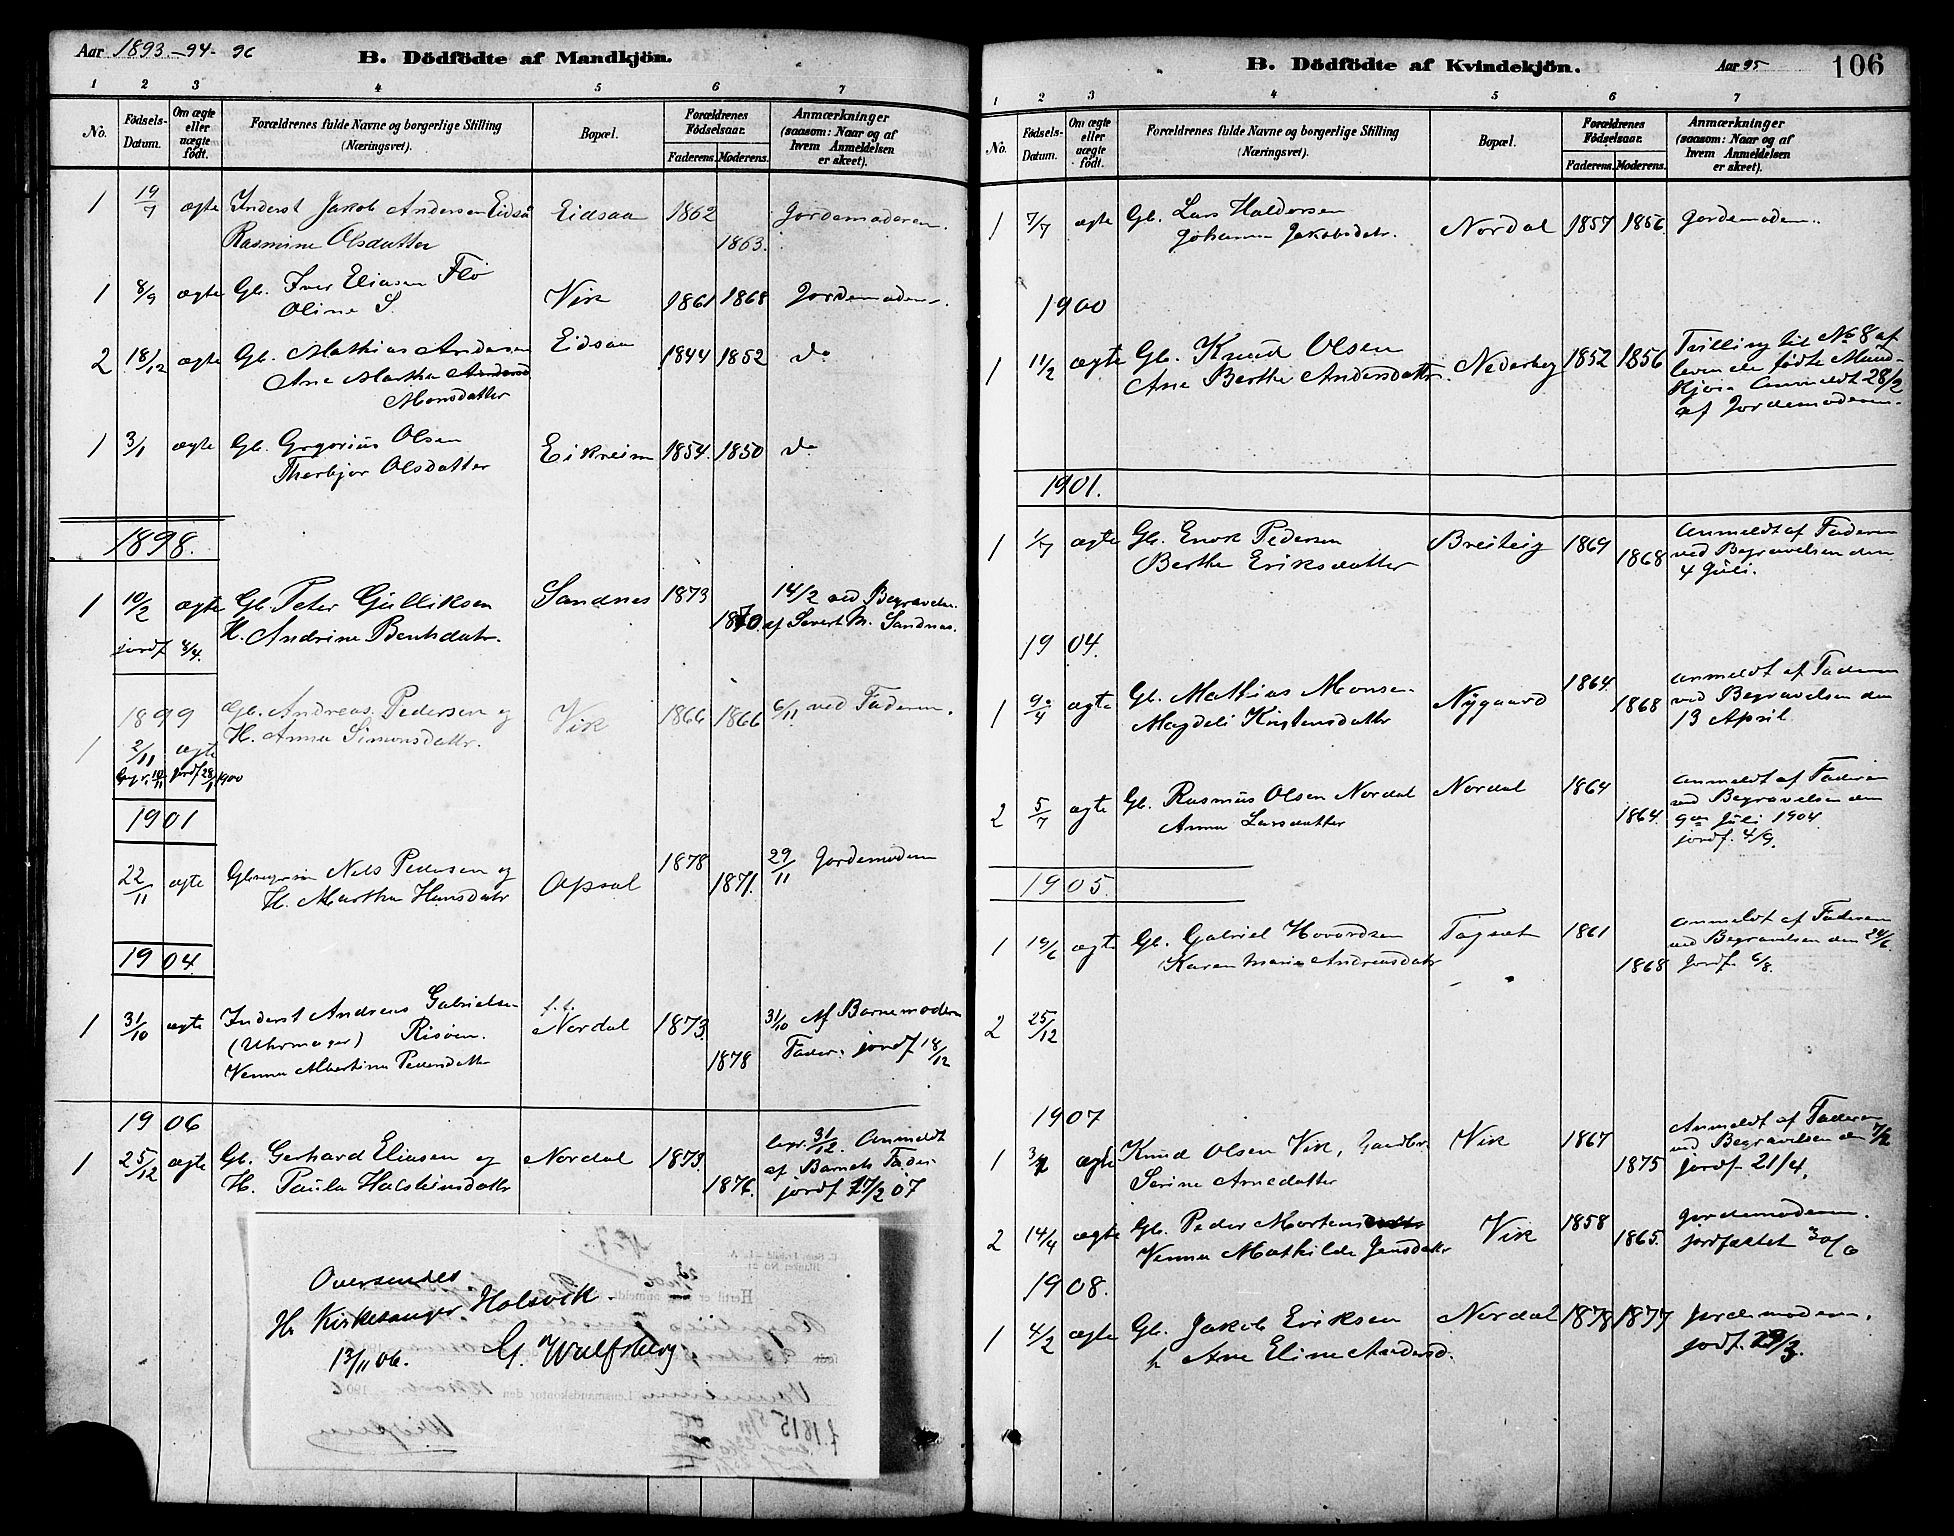 Aar 1893.-94-96
B. Dödfödte af Mandkjön.
1 2 3 4 5 6 7
No. Födsels-Datum. Om ægte eller uægte födt. Forældrenes fulde Navne og borgerlige Stilling (Næringsvei). Bopæl. Forældrenes Födselsaar. Faderens. Moderens. Anmærkninger (saasom: Naar og af hvem Anmeldelsen er skeet).
1 19/7 ægte Inderst Jakob Andersen Eidsaa Eidsaa 1862 Jordemoderen.
Rasmine Olsdatter 1863.
1 8/9 ægte Gb. Iver Eliasen Flo Vik 1861 1868 Jordemoderen.
Oline S.
2 18/12 ægte Gb. Mathias Andersen Eidsaa 1844 1852 do
Ane Marthe
Monsdatter
1 3/1 ægte Gb. Gregorius Olsen Eikreim 1854. 1850 do
Therbjor Olsdatter
1898.
1 10/2 ægte Gb. Peter Gulliksen Sandnes 1873 14/2 ved Begravelsen
H. Andrine Bentsdatr. 1870. af Sivert M. Sandnes.
jordf 8/4.
1899 Gb. Andreas Pedersen og Vik 1866 1866 6/11 ved Faderen.
H. Anna Simonsdatr.
1 2/11 ægte
begr. 10/11 jordf 28/1 1900
1901
22/11 ægte Nils Pedersen og Opsal 1878 1871. 29/11 Jordemoderen
H. Martha Hansdatr
1904
1 31/10 ægte Inderst Andreas Gabrielsen t.t. Nordal 1873. 31/10 Af Barnemoderen
(Uhrmager) Risöen. Fader. jordf 18/12
Venna Albertina Pedersdatter 1878
1906
1 25/12 ægte Gb. Gerhard Eliasen og Nordal 1873. begr. 31/12. Anmeldt
H. Paula Halsteinsdatter 1876. af Barnets Fader
jordf 17/2 07
Oversendes
Hr Kirkesanger Halsvik.
13/11 06. G. Wulfsberg
B. Dödfödte af Kvindekjön.
Aar 95
106
1 2 3 4 5 6 7
No. Födsels-Datum. Om ægte eller uægte födt. Forældrenes fulde Navne og borgerlige Stilling (Næringsvei). Bopæl. Forældrenes Födselsaar. Faderens. Moderens. Anmærkninger (saasom: Naar og af hvem Anmeldelsen er skeet).
1 7/7 ægte Gb. Lars Haldorsen Nordal 1857 1856 Jordemoderen.
Johanna Jakobsdatr.
1900
1 11/2 ægte Gb. Knud Olsen Nederberg 1852 1856 Tvilling til No 8 af
Ane Berthe Andersdatter. levende födte Mand-
kjön. Anmeldt 28/2
af Jordemoderen.
1901.
1 1/7 ægte Gb. Enok Pedersen Breiteig 1869 1868 Anmeldt af Faderen
Berthe Eriksdatter ved Begravelsen den
4 Juli.
1904.
1 9/4 ægte Gb. Mathias Monsen Nygaard 1864. 1868 Anmeldt af Faderen
Magdeli Kristensdatter ved Begravelsen den
13 April
2 5/7 ægte Gb. Rasmus Olsen Nordal Nordal 1864 1864. Anmeldt af Faderen
Anna Larsdatter ved Begravelsen den
9de Juli 1904
jordf. 4/9.
1905.
1 19/6 ægte Gb. Gabriel Hovardsen 1861 1868 Anmeldt af Faderen
Karen Marie Andreasdatr ved Begravelsen den 24/6
Jordf. 6/8.
2 25/12
1907
1 ægte Knud Olsen Vik, Gaardbr. Vik 1867 1875 Anmeldt af Faderen
Serine Arnedatter ved Begravelsen den 7/2
jordf. 21/4.
2 14/4 ægte Gb. Peder Mortens Vik 1858 1865. Jordemoderen.
Venna Mathilde Jensdatter jordfæstet 30/6
1908.
1 4/2 ægte Gb. Jakob Eriksen Nordal 1878 1877 Jordemoderen.
h Ane Eline Andersd. jordf. 29/3.